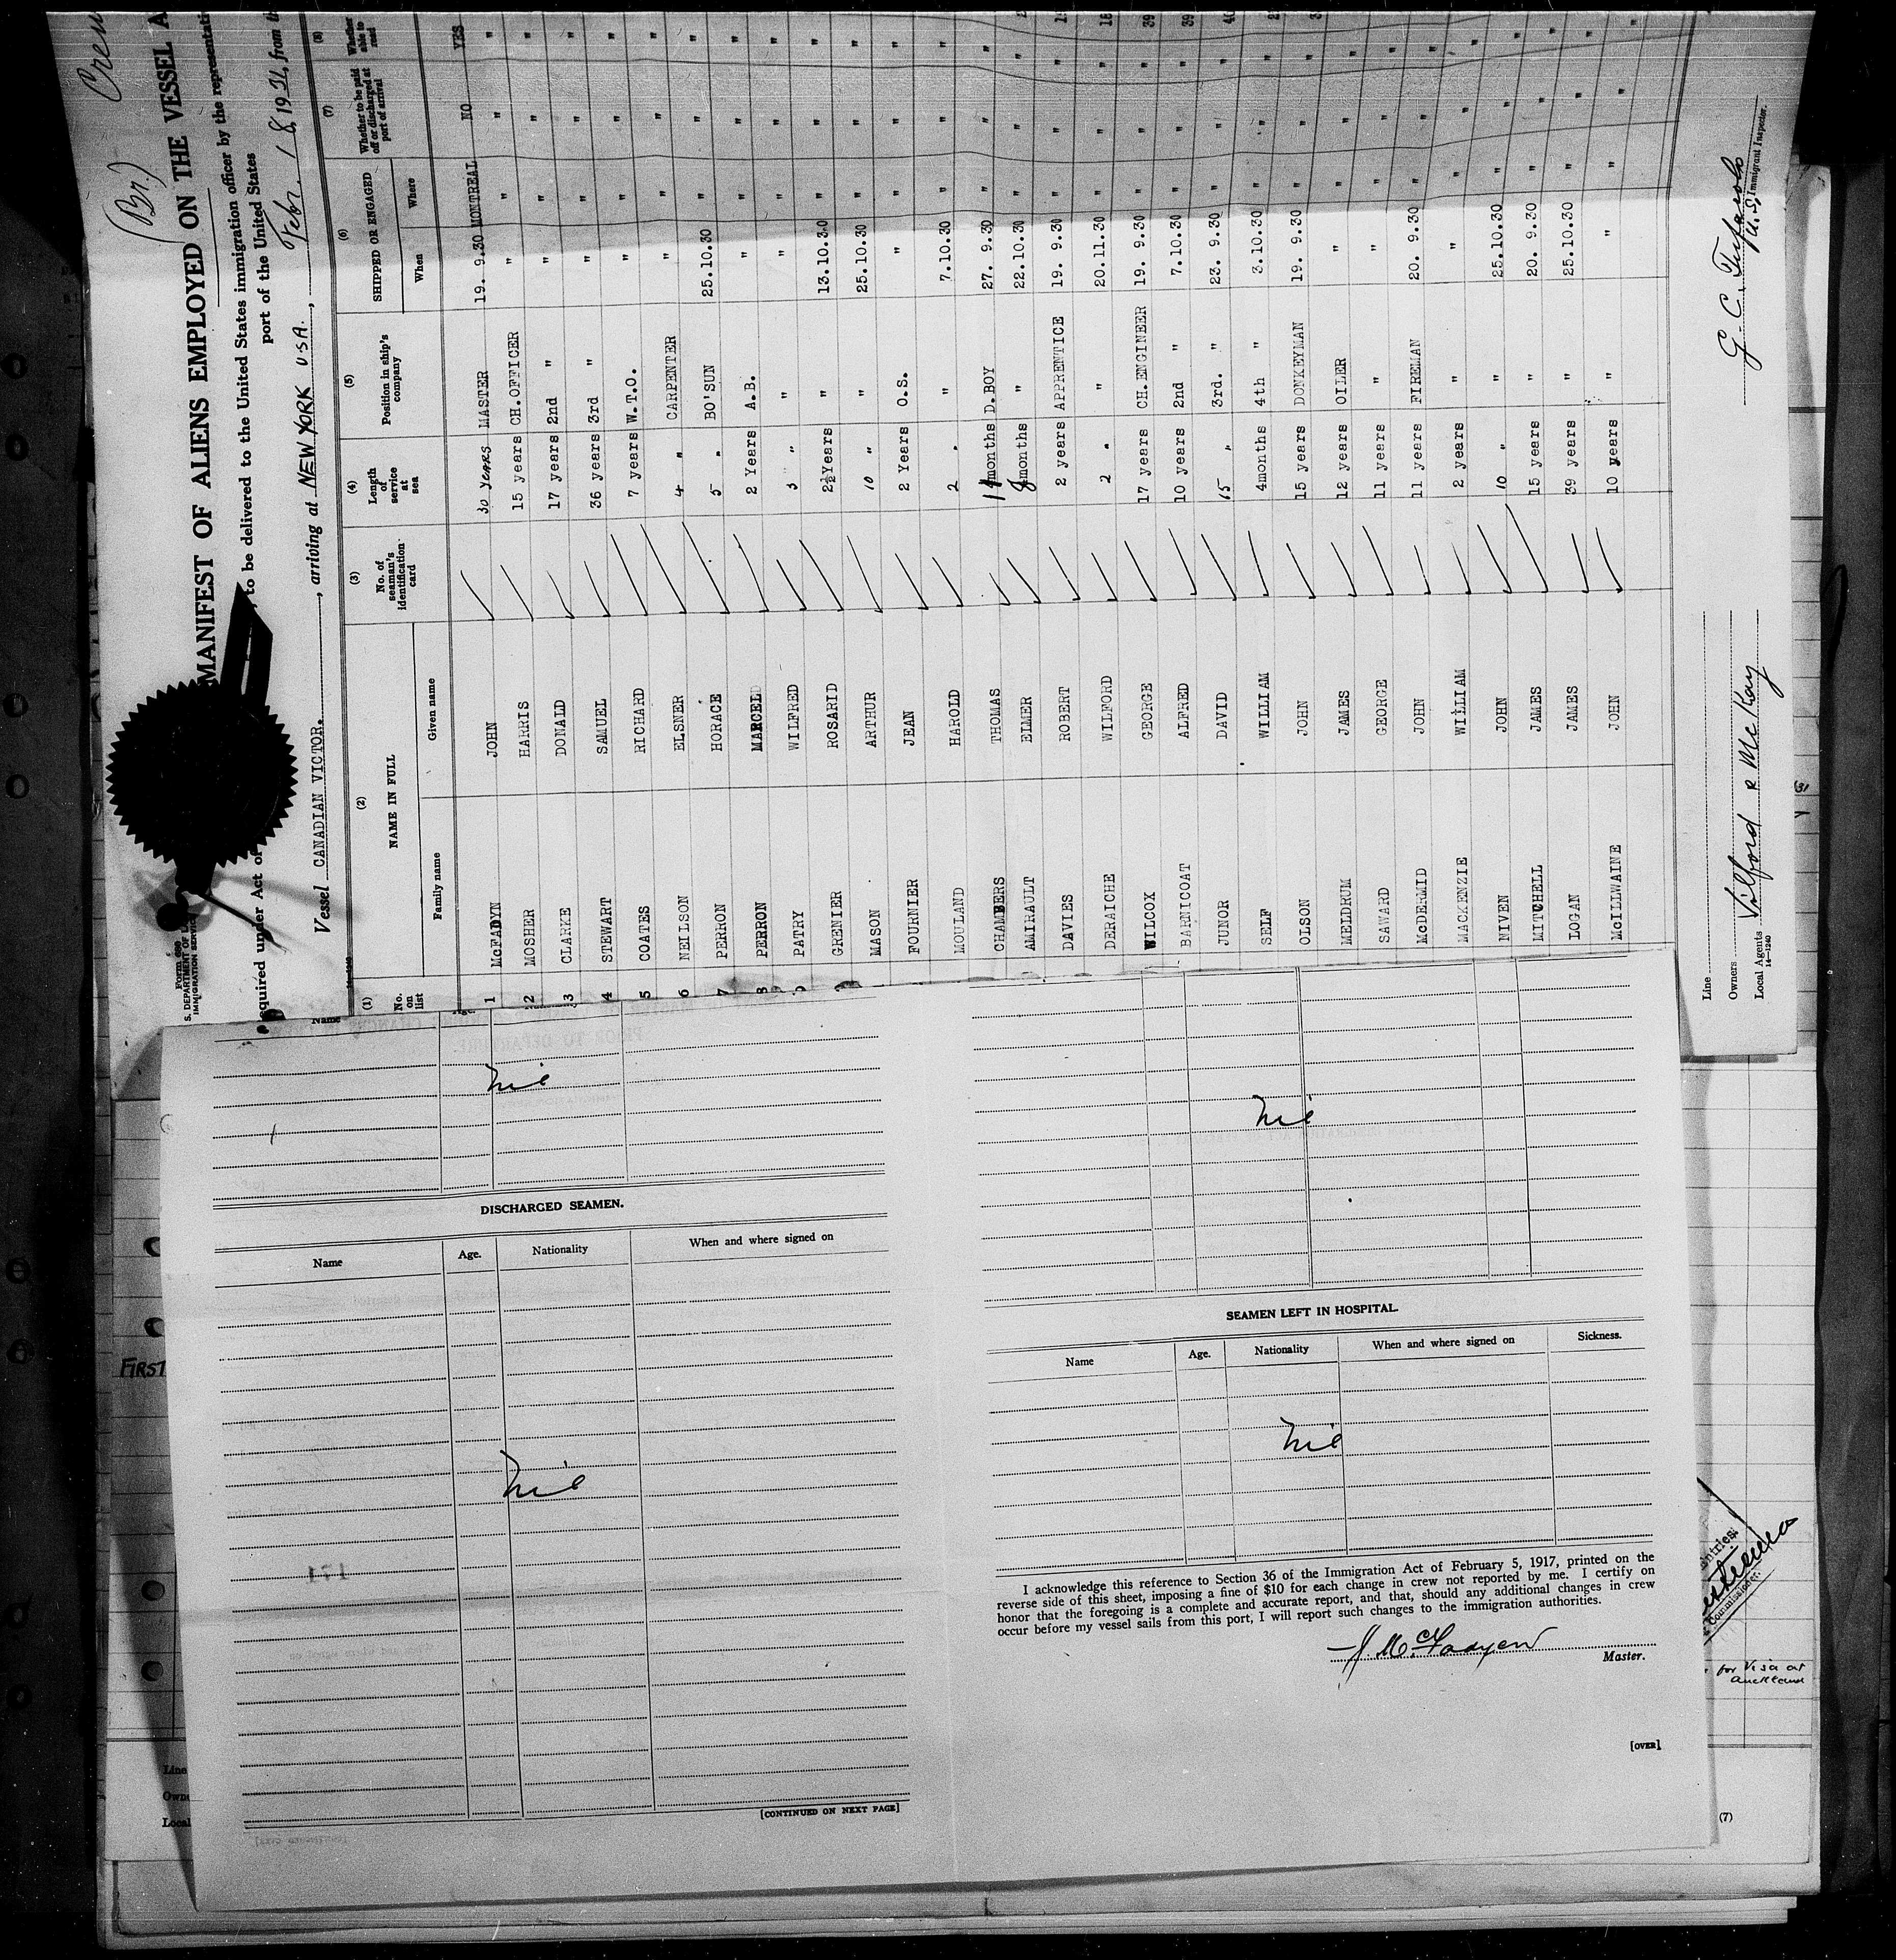 Crew
(Br)
MANIFEST OF ALIENS EMPLOYED ON THE VESSEL A
Form 680
S. DEPARTMENT OF
IMMIGRATION SERVICE
equired under Act of
, to be delivered to the United States immigration officer by the representati
port of the United States
Vessel CANADIAN VICTOR. , arriving at NEW YORK USA. , Febr. 18, 1931, from th
(1) (2) (3) (4) (5) (6) (7) (8)
No. on list NAME IN FULL No. of seaman's identification card Length of service at sea Position in ship's company SHIPPED OR ENGAGED Whether to be paid off or discharged at port of arrival Whether able to read
Family name Given name When Where
1 McFADYN JOHN 30 years MASTER 19. 9.30 MONTREAL NO YES
2 MOSHER HARRIS 15 years CH.OFFICER " " " "
3 CLARKE DONALD 17 years 2nd " " " " "
4 STEWART SAMUEL 36 years 3rd " " " " "
5 COATES RICHARD 7 years W.T.O. " " " "
6 NEILSON ELSNER 4 " CARPENTER " " " "
7 PERRON HORACE 5 " BO'SUN 25.10.30 " " "
8 PERRON MARCEL 2 Years A.B. " " " "
PATRY WILFRED 3 " " " " " "
GRENIER ROSARID 2½Years " 13.10.30 " " "
MASON ARTHUR 10 " " 25.10.30 " " "
FOURNIER JEAN 2 Years O.S. " " " "
MOULAND HAROLD 2 " " 7.10.30 " " "
CHAMBERS THOMAS 11months D.BOY 27. 9.30 " " "
AMIRAULT ELMER 8months " 22.10.30 " " "
DAVIES ROBERT 2 years APPRENTICE 19. 9.30 " " "
DERAICHE WILFORD 2 " " 20.11.30 " " "
WILCOX GEORGE 17 years CH.ENGINEER 19. 9.30 " " "
BARNICOAT ALFRED 10 years 2nd " 7.10.30 " " "
JUNOR DAVID 15 " 3rd. " 23. 9.30 " " "
SELF WILLIAM 4months 4th " 3.10.30 " " "
OLSON JOHN 15 years DONKEYMAN 19. 9.30 " " "
MELDRUM JAMES 12 years OILER " " " "
SAWARD GEORGE 11 years " " " " "
McDERMID JOHN 11 years FIREMAN 20. 9.30 " " "
MACKENZIE WILLIAM 2 years " " " " "
NIVEN JOHN 10 " " 25.10.30 " " "
MITCHELL JAMES 15 years " 20. 9.30 " " "
LOGAN JAMES 39 years " 25.10.30 " " "
McILLWAINE JOHN 10 years " " " " "
Line
Owners
Local Agents Wilford & McKay
14—1240
U.S. Immigrant Inspector.
Name
Nil
DISCHARGED SEAMEN.
Name Age. Nationality When and where signed on
Nil
[CONTINUED ON NEXT PAGE]
Nil
SEAMEN LEFT IN HOSPITAL.
Name Age. Nationality When and where signed on Sickness.
Nil
I acknowledge this reference to Section 36 of the Immigration Act of February 5, 1917, printed on the
reverse side of this sheet, imposing a fine of $10 for each change in crew not reported by me. I certify on
honor that the foregoing is a complete and accurate report, and that, should any additional changes in crew
occur before my vessel sails from this port, I will report such changes to the immigration authorities.
J. McFadyen
Master.
[OVER]
FIRST
Line
Owne
Local
ntries:
Commissioner.
for Visa at
Auckland
(7)